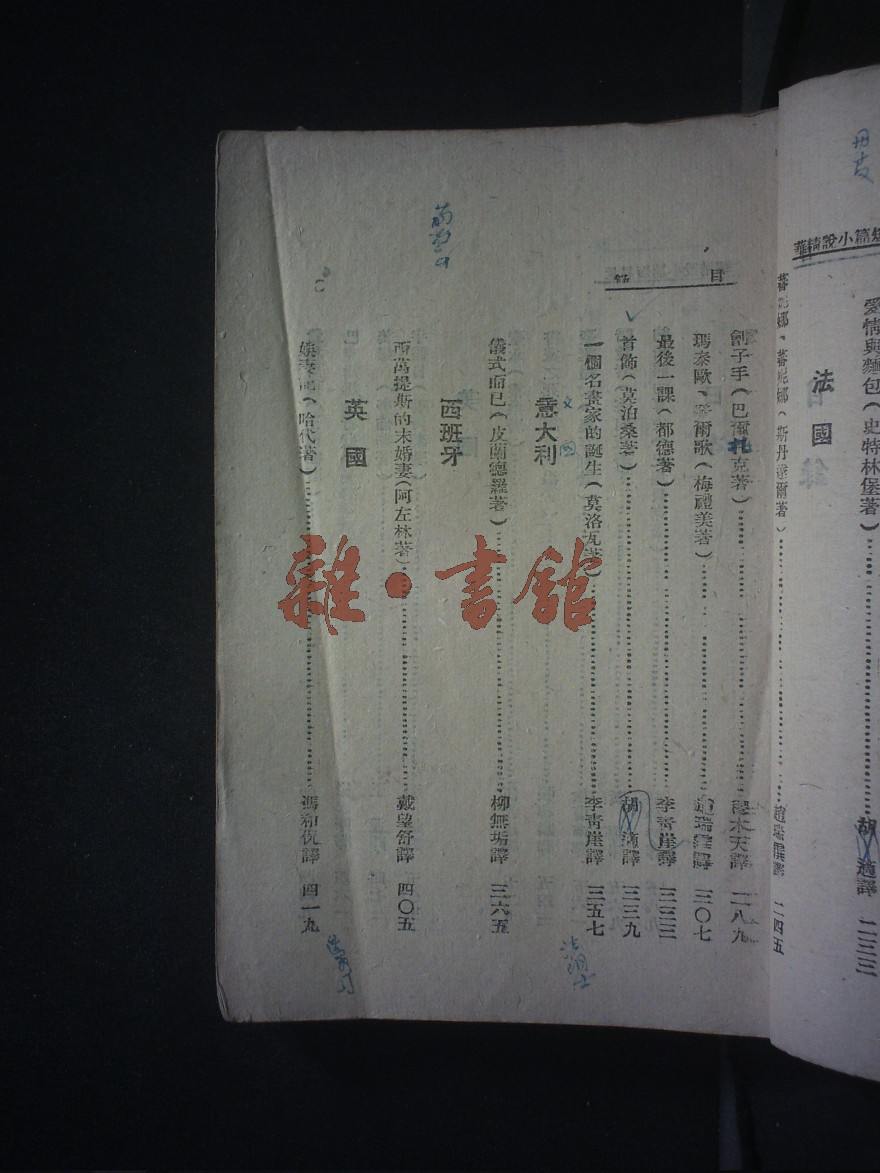 短篇小說精華
愛情與麵包(史特林堡著)胡適譯 二三三
法國
蕃妮娜、蕃妮娜(斯丹達爾著)趙瑞霟譯 二四五
目錄
劊子手(巴爾扎克著)穆木天譯 二八九
瑪泰歐、爾歌(梅禮美著)趙瑞霟譯 三〇七
最後一課(都德著)李青崖譯 三三三
首飾(莫泊桑著)胡適譯 三三九
一個名畫家的誕生(莫洛瓦著)李青崖譯 三五七
意大利
儀式而已(皮蘭德羅著)柳無垢譯 三六五
西班牙
西萬提斯的未婚妻(阿左林著)戴望舒譯 四〇五
英國
娛妻記(哈代著)馮和侃譯 四一九
雜·書館